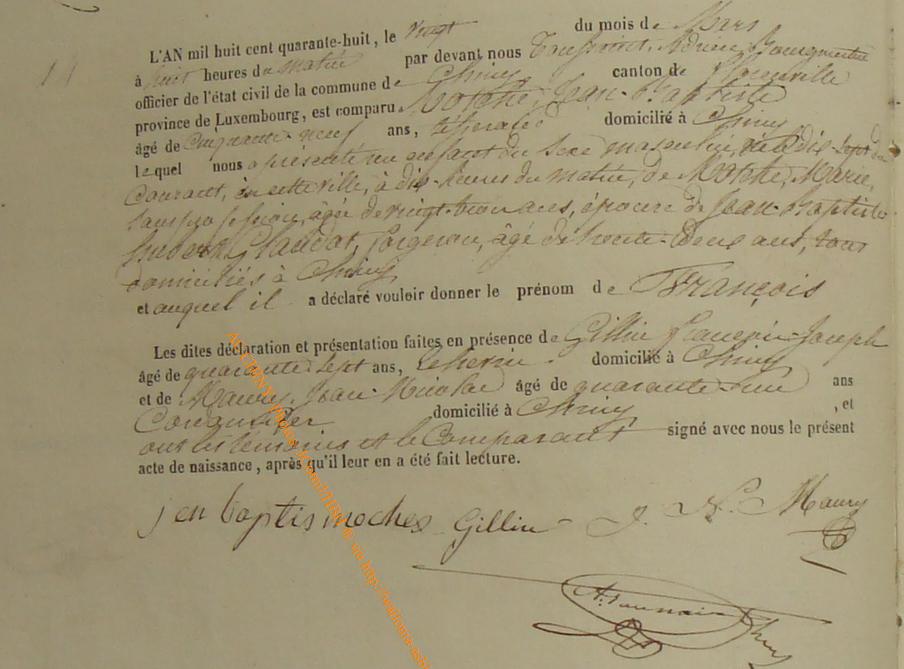 11
L'AN mil huit cent quarante-huit, le vingt du mois de Mars
à huit heures du matin par devant nous Adrien Bourgmestre
officier de l'état civil de la commune de Chiny canton de
province de Luxembourg, est comparu Motché, Jean-Baptiste
âgé de Cinquante-neuf ans, domicilié à Chiny
lequel nous a présenté un enfant du sexe masculin, né le dix-sept du
Courant, en cette ville, à dix heures du matin, de Motché, Marie,
sans profession, âgée de vingt-trois ans, épouse de Jean-Baptiste
forgeron, âgé de trente-deux ans, tous
domiciliés à Chiny
et auquel il a déclaré vouloir donner le prénom de François
Les dites déclaration et présentation faites en présence de Gillin François-Joseph
âgé de quarante-sept ans, domicilié à Chiny
et de Maury, Jean-Nicolas âgé de quarante-un ans
domicilié à Chiny , et
ont les témoins et le Comparant signé avec nous le présent
acte de naissance, après qu'il leur en a été fait lecture.
jen baptis moches Gillin J. N. Maury